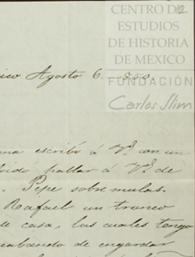 CENTRO DE
ESTUDIOS
DE HISTORIA
DE MEXICO
FUNDACIÓN
Carlos Slim
2
ico Agosto 6
escribí á Vd. con un
hablar á Vd. de
Pepe sobre mulas.
Rafael un tronco
casa, las cuales tengo
acabando de engordar